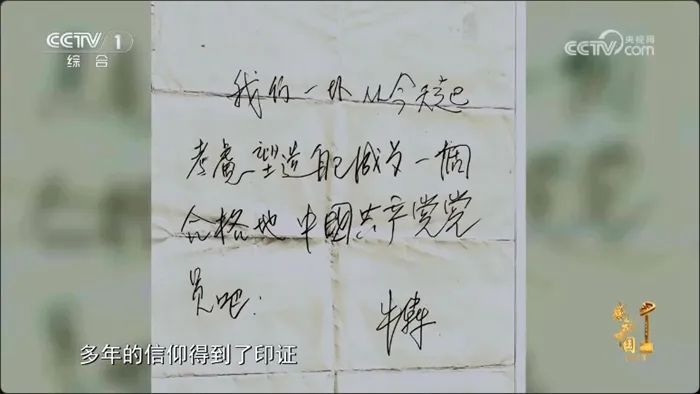 CCTV 1
综合
央视网
CCTV.com
我们一块从今天起
考虑塑造自己成为一個
合格地中國共产党党
员吧.
牛犇
多年的信仰得到了印证
感动中国